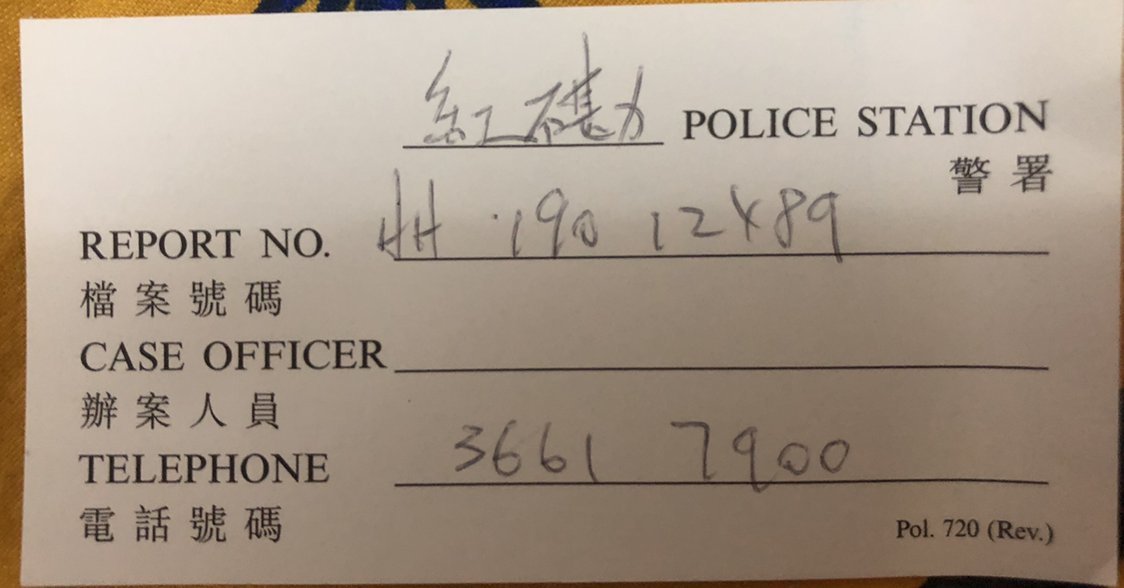 紅磡 POLICE STATION
警署
REPORT NO. HH 190 12489
檔案號碼
CASE OFFICER
辦案人員
TELEPHONE 3661 7900
電話號碼
Pol. 720 (Rev.)